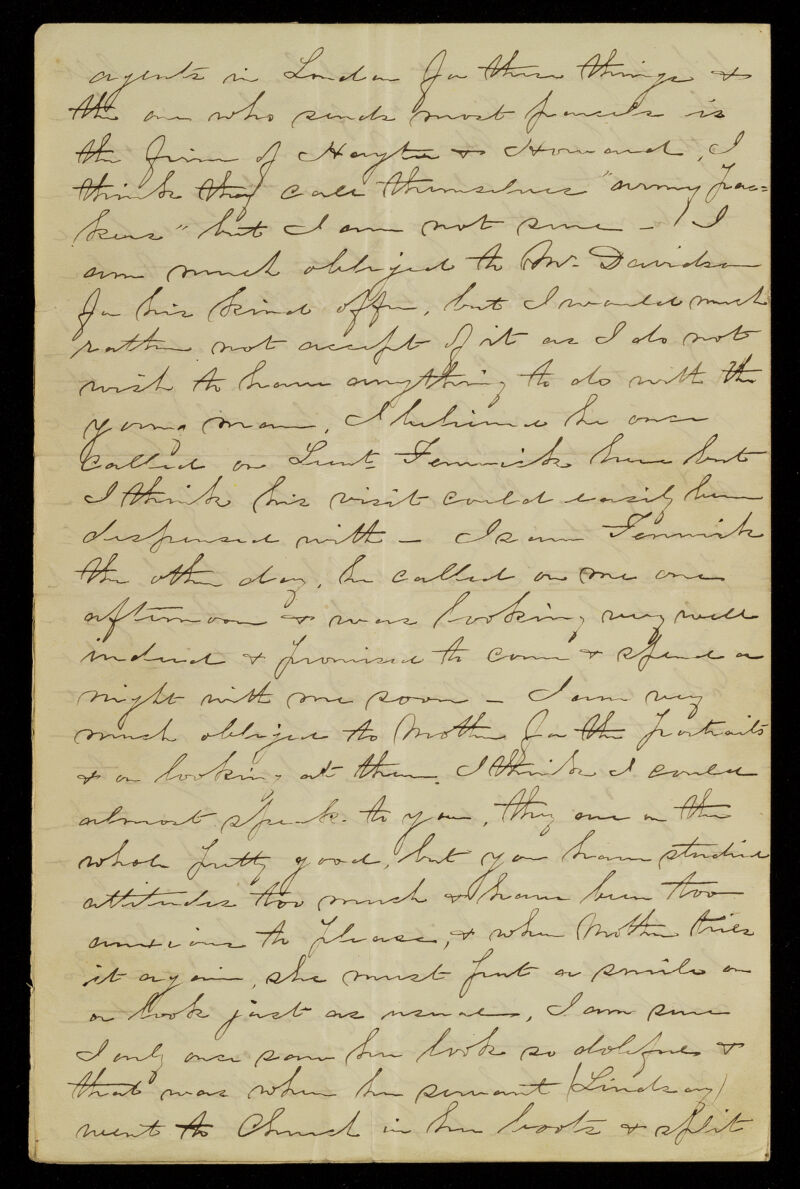 agents in London for these things &
the one who sends most parcels is
the firm of Hayter & Howard, I
think they call themselves "army pac=
kers" but I am not sure - I
am much obliged to Mr. Davidson
for his kind offer, but I would much
rather not accept of it as I do not
wish to have anything to do with the
young man, I believe he once
called on Lieut Fenwick here but
I think his visit could easily been
dispensed with - I saw Fenwick
the other day, he called on me one
afternoon & was looking very well
indeed & promised to come & spend a
night with me soon - I am very
much obliged to Mother for the portraits
& on looking at them I think I could
almost speak to you, they are on the
whole pretty good, but you have studied
attitudes too much & have been too
anxious to please, & when Mother tries
it again, she must put a smile on
or look just as usual, I am sure
I only once saw her look so dolefull &
that was when her servant (Lindsay)
went to Church in her boots & split